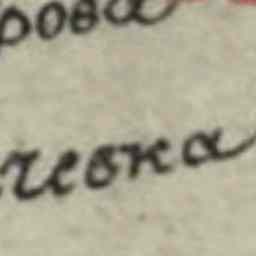 рова
чевка